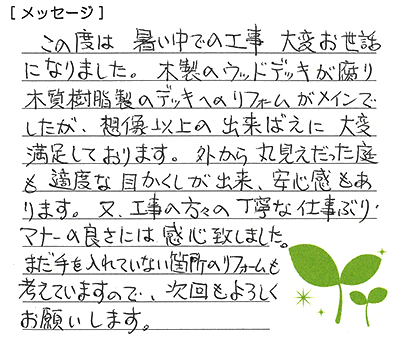 [メッセージ]
この度は 暑い中での工事 大変お世話
になりました。木製のウッドデッキが腐り
木質樹脂製のデッキへのリフォームがメインで
したが、想像以上の出来ばえに 大変
満足しております。外から丸見えだった庭
も 適度な目かくしが出来、安心感もあ
ります。又、工事の方々の丁寧な仕事ぶり・
マナーの良さには感心致しました。
まだ手を入れていない箇所のリフォームも
考えていますので、次回もよろしく
お願いします。